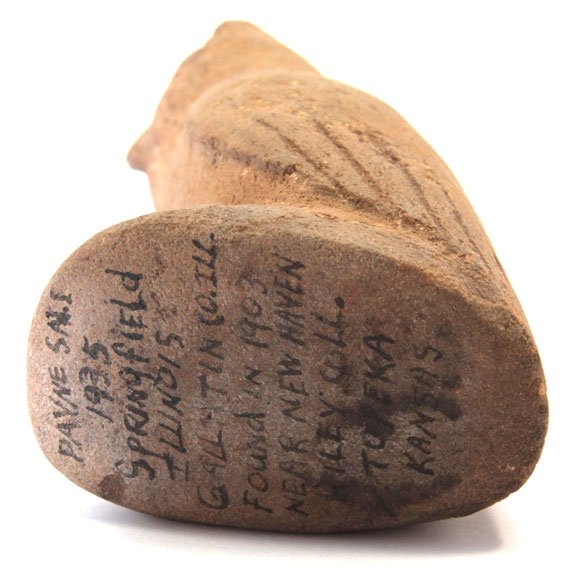 PAYNE SALE
1935
SPRINGFIELD
ILLINOIS
GALLATIN CO. ILL.
FOUND IN 1903
NEAR NEW HAVEN
RILEY COLL.
TOPEKA
KANSAS